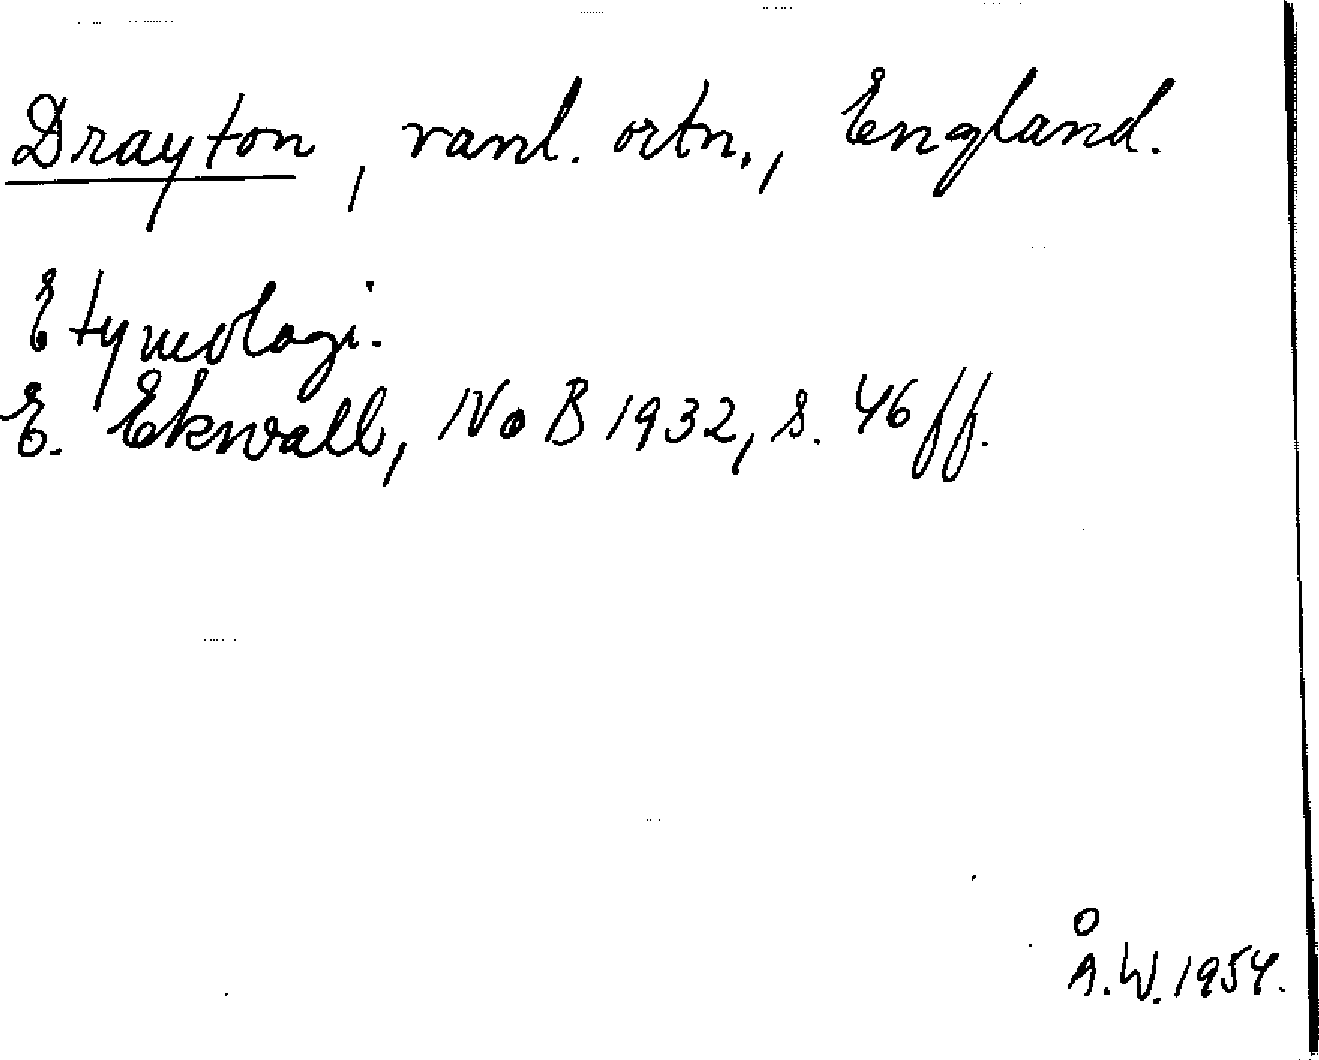 Drayton, vanl. ortn., England.
Etymologi.
E. Ekwall, NoB 1932, s. 46 ff.
Å.W. 1954.